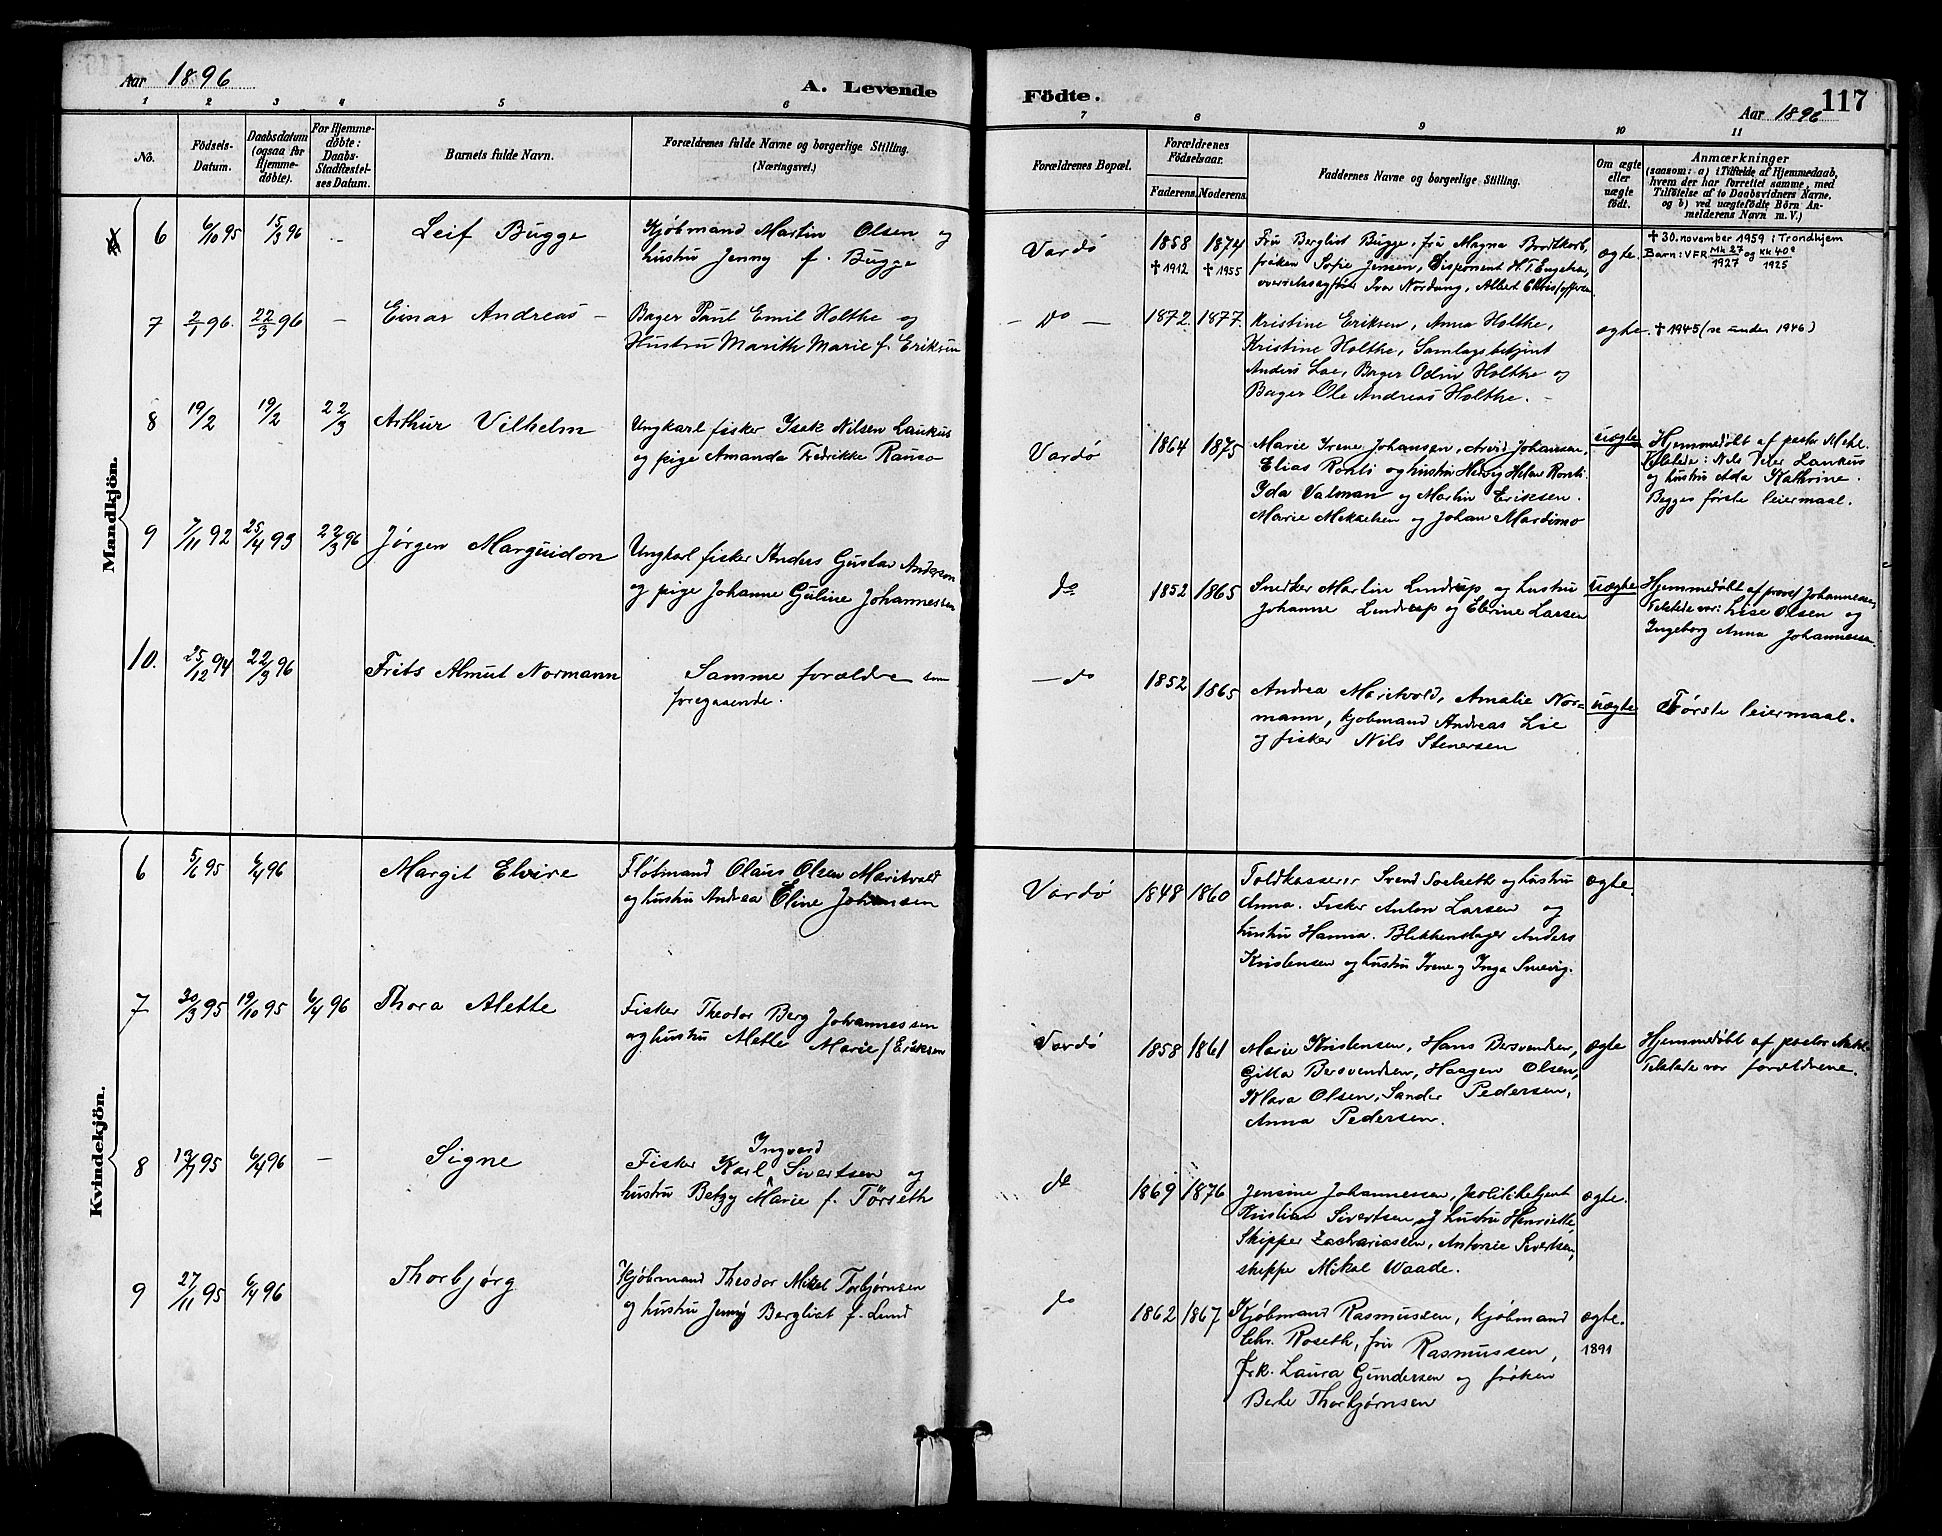 Aar 1896
A. Levende
Födte.
117
Aar 1896
1 2 3 4 5 6 7 8 9 10 11
No.
Födsels-
Datum.
Daabsdatum
(ogsaa for
Hjemme-
döbte).
For Hjemme-
döbte:
Daabs-
Stadfæstel-
ses Datum.
Barnets fulde Navn.
Forældrenes fulde Navne og borgerlige Stilling.
(Næringsvei.)
Forældrenes Bopæl.
Forældrenes
Födselsaar.
Faderens. Moderens.
Faddernes Navne og borgerlige Stilling.
Om ægte
eller
uægte
födt.
Anmærkninger
(saasom: a) i Tilfælde af Hjemmedaab,
hvem der har forrettet samme, med
Tilföielse af to Daabsvidners Navne.
og b) ved uægtefödte Börn An-
melderens Navn m. V.)
Mandkjön.
6 6/10 95 15/3 96 -
Leif Bugge
Kjøbmand Martin Olsen og
hustru Jenny f. Bugge
Vardø
1858 1874
✝ 1912 ✝ 1955
Fru Bergliot Bugge, fru Magna Brodtkorb,
frøken Sofie Jensen, Disponent H. T. Engelsen,
overretssagfører Ivar Nordung, Albert
ægte.
✝ 30. november 1959 i Trondhjem
Barn: VFR Mk 27/1927 og kk 40/1925
7 2/1 96. 22/3 96 -
Einar Andreas -
Bager Paul Emil Holthe og
Hustru Marith Marie f. Eriksen
- Do -
1872. 1877.
Kristine Eriksen, Anna Holthe,
Kristine Holthe, Samlagsbetjent
Anders Loe, Bager Odin Holthe og
Bager Ole Andreas Holthe. -
ægte.
✝ 1945 (se under 1946)
8 19/2 19/2 22/3
Arthur Vilhelm
Ungkarl fisker Isak Nilsen Laukus
og pige Amanda Fredrikke Rauso
Vardø
1864 1875
Marie Irene Johansen, Arvid Johansen,
Elias Ronti og hustru Hedvig Helene Ronti
Ida Valman og Martin Eriksen.
Marie Mikkelsen og Johan Mardimo
uægte
Hjemmedøbt af pastor
Tilstede: Nils Peter Laukus
og hustru Ada Kathrine.
Begges første leiermaal.
9 7/11 92 25/4 93 22/3 96
Jørgen Marguidon
Ungkarl fisker Anders Gustav Anderson
og pige Johanne Guline Johannessen
do
1852 1865
Snedker Martin Lindrup og hustru
Johanne Lindrup og Elerine Larsen
uægte
Hjemmedøbt af provst Johannessen,
Tilstede var: Lise Olsen og
Ingeborg Anna Johannessen.
10. 25/12 94 22/3 96
Frits Almut Normann
Samme forældre som
foregaaende.
- do
1852 1865
Andrea Maritvold, Amalie Nor-
mann, kjøbmand Andreas Lie
og fisker Nils Stenersen
uægte
Første leiermaal.
Kvindekjön.
6 5/6 95 6/4 96
Margit Elvire
Fløtmand Olaus Olsen Maritvold
og hustru Andrea Eline Johansen
Vardø
1848 1860
Toldkasserer Svend Soelseth og hustru
Anna. Fisker Anton Larsen og
hustru Hanna. Blikkenslager Anders
Kristensen og hustru Irene og Inga Snevig.
ægte.
7 30/3 95 19/10 95 6/4 96
Thora Alette
Fisker Theodor Berg Johannessen
og hustru Alette Marie f Eriksen
Vardø
1858 1861
Marie Kristensen, Hans Bersvendsen,
Gitta Bersvendsen, Haagen Olsen,
Klara Olsen, Sander Pedersen,
Anna Pedersen.
ægte
Hjemmedøbt af pastor
Tilstede var forældrene.
8 95 6/4 96 -
Signe
Ingvard
Fisker Karl Sivertsen og
hustru Betzy Marie f. Törreth
do
1869 1876
Jensine Johannessen, politibetjent
Kristian Sivertsen og hustru Henriette,
Skipper Zachariassen, Antonie Sivertsen,
skipper Mikal Waade.
ægte.
9 27/11 95 6/4 96
Thorbjørg
Kjøbmand Theodor Mikal Torbjørnsen
og hustru Jenny Bergliot f. Lund
do
1862 1867
Kjøbmand Rasmussen, kjøbmand
Chr. Roseth, fru Rasmussen,
Frk. Laura Gundersen og frøken
Berte Thorbjørnsen
ægte.
1891